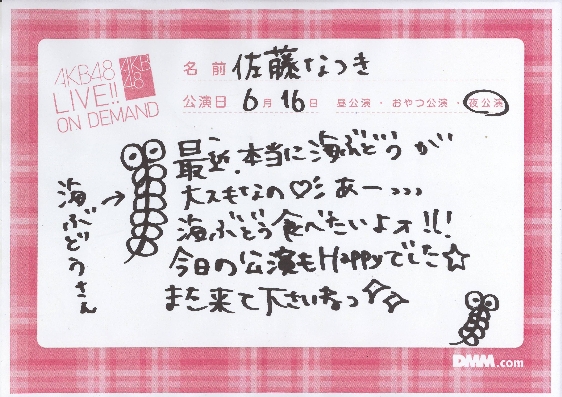 AKB48
LIVE!!
ON DEMAND
AKB
48
名前 佐藤なつき
公演日 6月16日 昼公演・おやつ公演・夜公演
最近、本当に海ぶどうが
大スキなの♡彡あー、、、
海ぶどう食べたいよォ!!!
今日の公演もHappyでした☆
また来て下さいねっ☆☆
海ぶどうさん
DMM.com